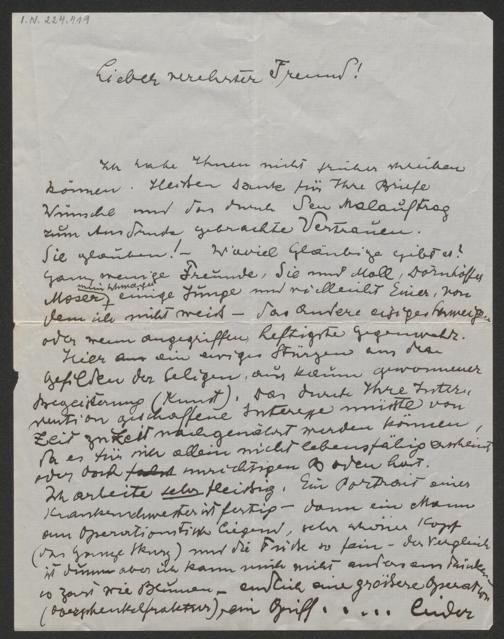 I.N. 224.419
Lieber verehrter Freund!
Ich habe Ihnen nicht früher schreiben
können. Heißen Dank für Ihre Briefe
Wünsche und das durch den Malauftrag
zum Ausdruck gebrachte Vertrauen.
Sie glauben! – Wieviel Gläubige gibt es?
Ganz wenige Freunde, Sie und Moll, Dörnhöffer
Moser, einige Junge und vielleicht Einer, von
dem ich nicht weiß – das andere eisiges Schweigen
oder wenn angegriffen, heftigste Gegenwehr.
Hier ein ewiges Stürzen aus den
Gefilden der Seligen, aus kaum gewonnener
Begeisterung (Kunst). Das durch Ihre Inter-
vention geschaffene Interesse müßte von
Zeit zu Zeit nachgenährt werden können,
da es für sich allein nicht lebensfähig erscheint
oder doch unrichtigen Boden hat.
Ich arbeite sehr fleißig. Ein Portrait einer
Krankenschwester ist fertig – dann ein Mann
am Operationstisch liegend, sehr schöner Kopf
(das Ganze) und die Füße so fein – der Vergleich
ist dumm aber ich kann mich nicht anders ausdrücken
so zart wie Blumen – endlich eine größere Operation
(Oberschenkelfraktur), ein Griff ..... Leider